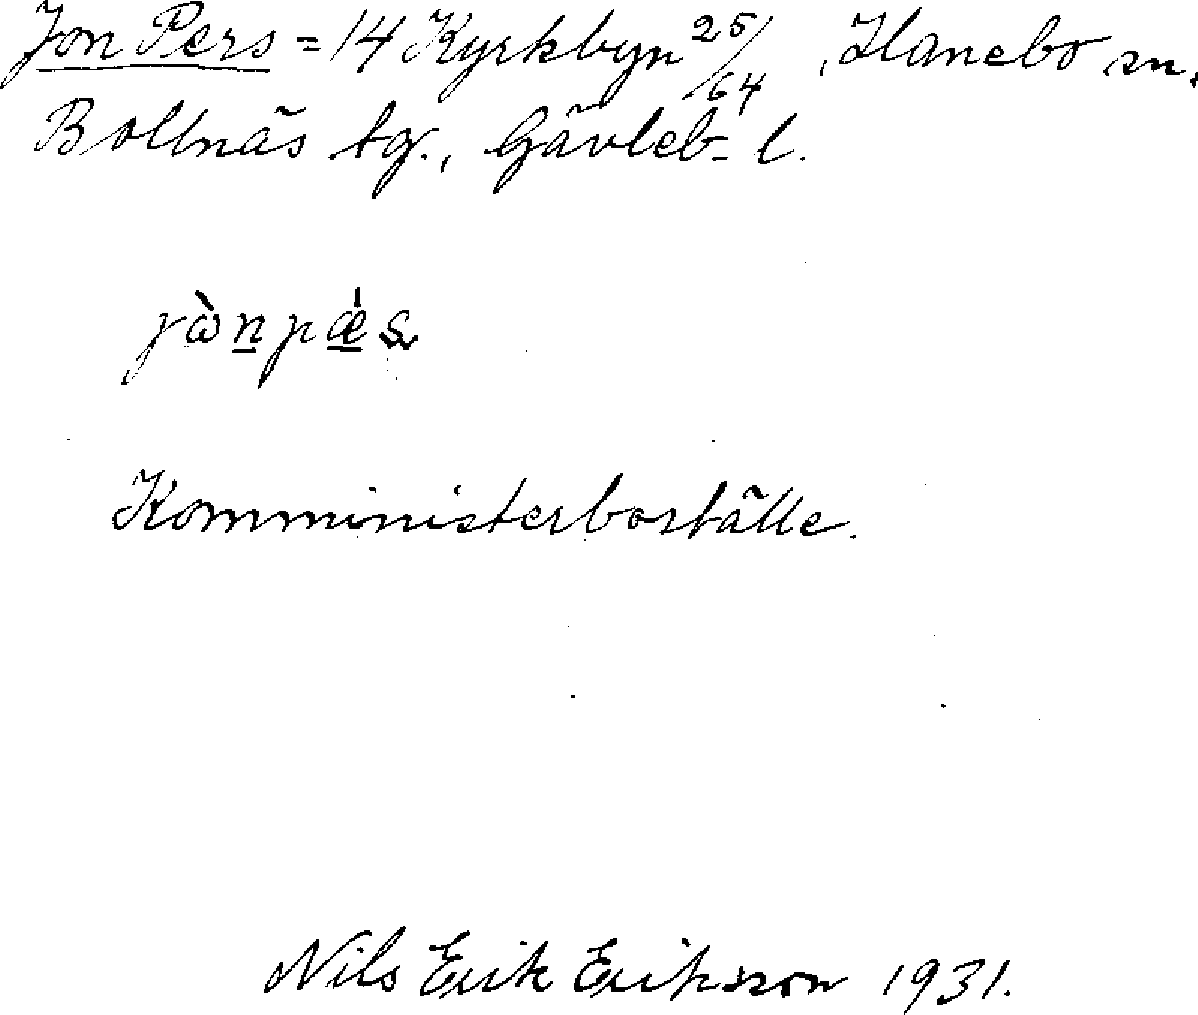 Jon Pers = 14 Kyrkbyn 25/64, Hanebo sn,
Bollnäs tg., Gävleb- l.
jὼn pǽs
Komministerboställe.
Nils Erik Eriksson 1931.